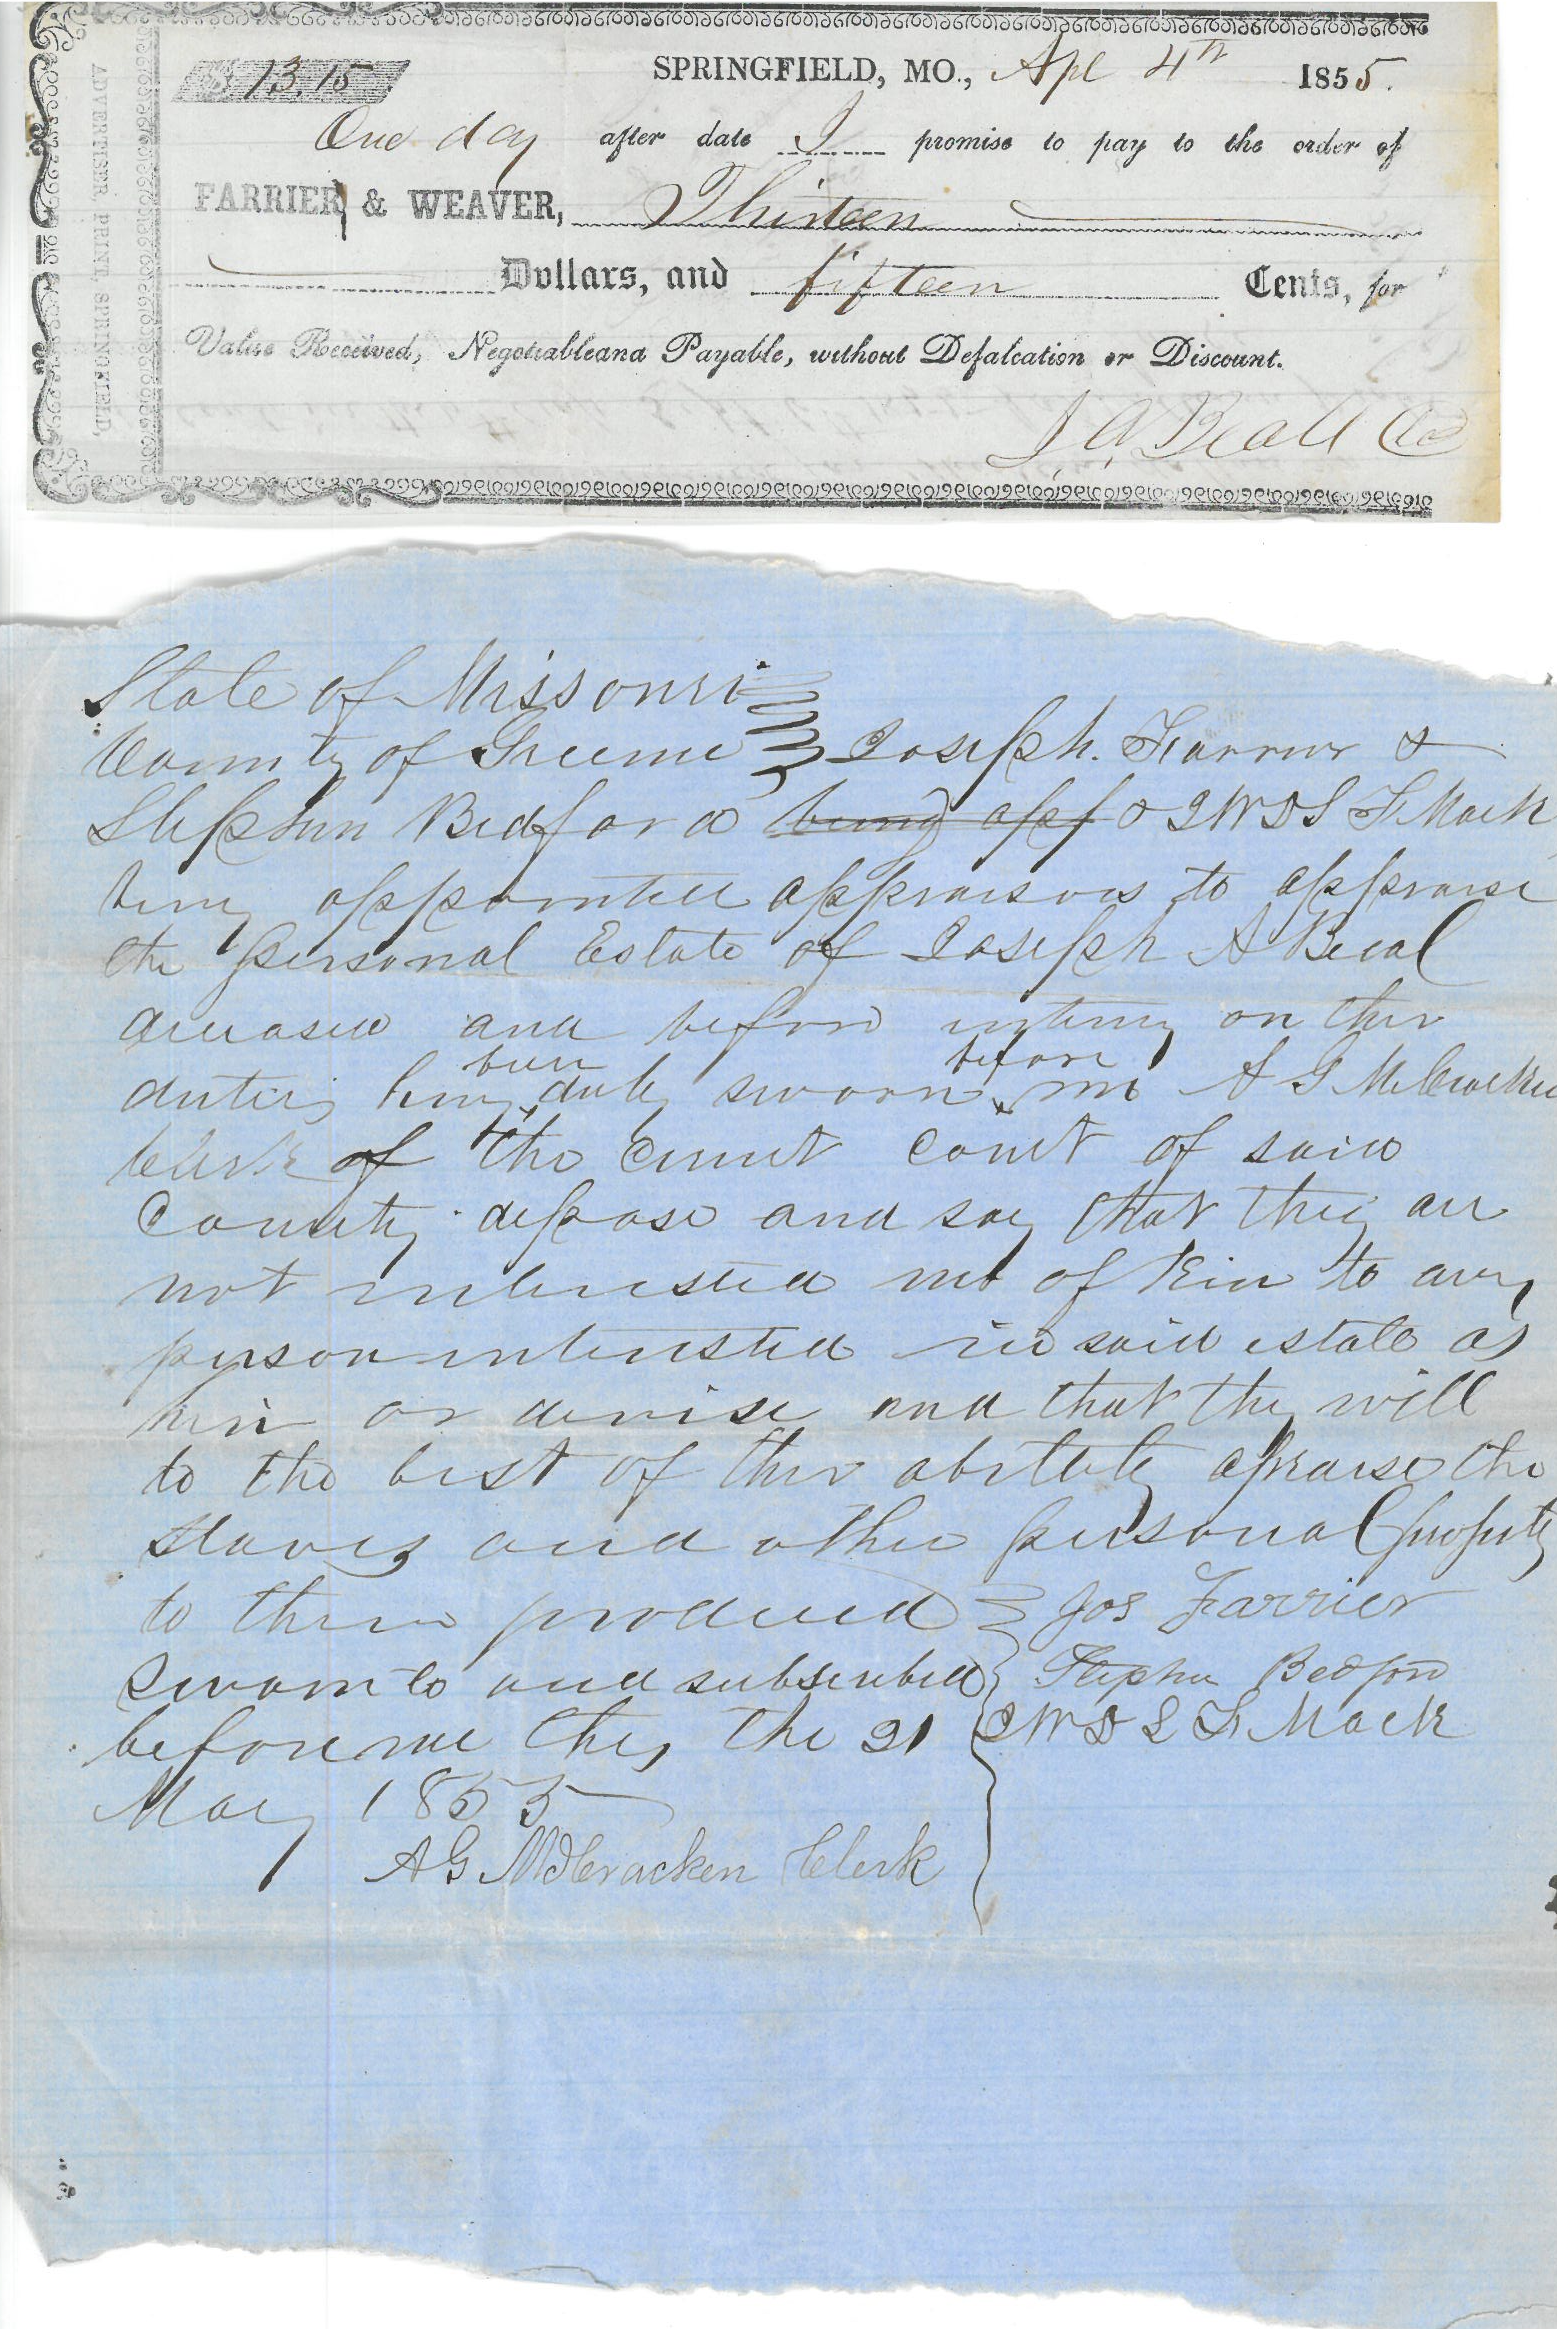 $13.15 SPRINGFIELD, MO., Apl 4th 1855.
One day after date I promise to pay to the order of
FARRIER & WEAVER, Thirteen
Dollars, and fifteen Cents, for
Value Received, Negotiable and Payable, without Defalcation or Discount.
J. A. Beall
ADVERTISER, PRINT, SPRINGFIELD,
State of Missouri
County of Greene Joseph. Farrier &
Stephen Bedford being app & J W D L F Mack
being appointed appraisors to appraise
the personal Estate of Joseph A Beal
deceased and before entering on ther
duties being been duly sworn before me A G McCracken
Clerk of the Count Court of said
County depose and say that they are
not interested not of Kin to any
person interested in said estate as
heir or devise and that they will
to the best of ther abitity apraise the
slaves and other personal property
to them produced Jos Farrier
Sworn to and subscribed Stephen Bedford
before me this the 21 J W D L F Mack
May 1855
A G McCracken Clerk